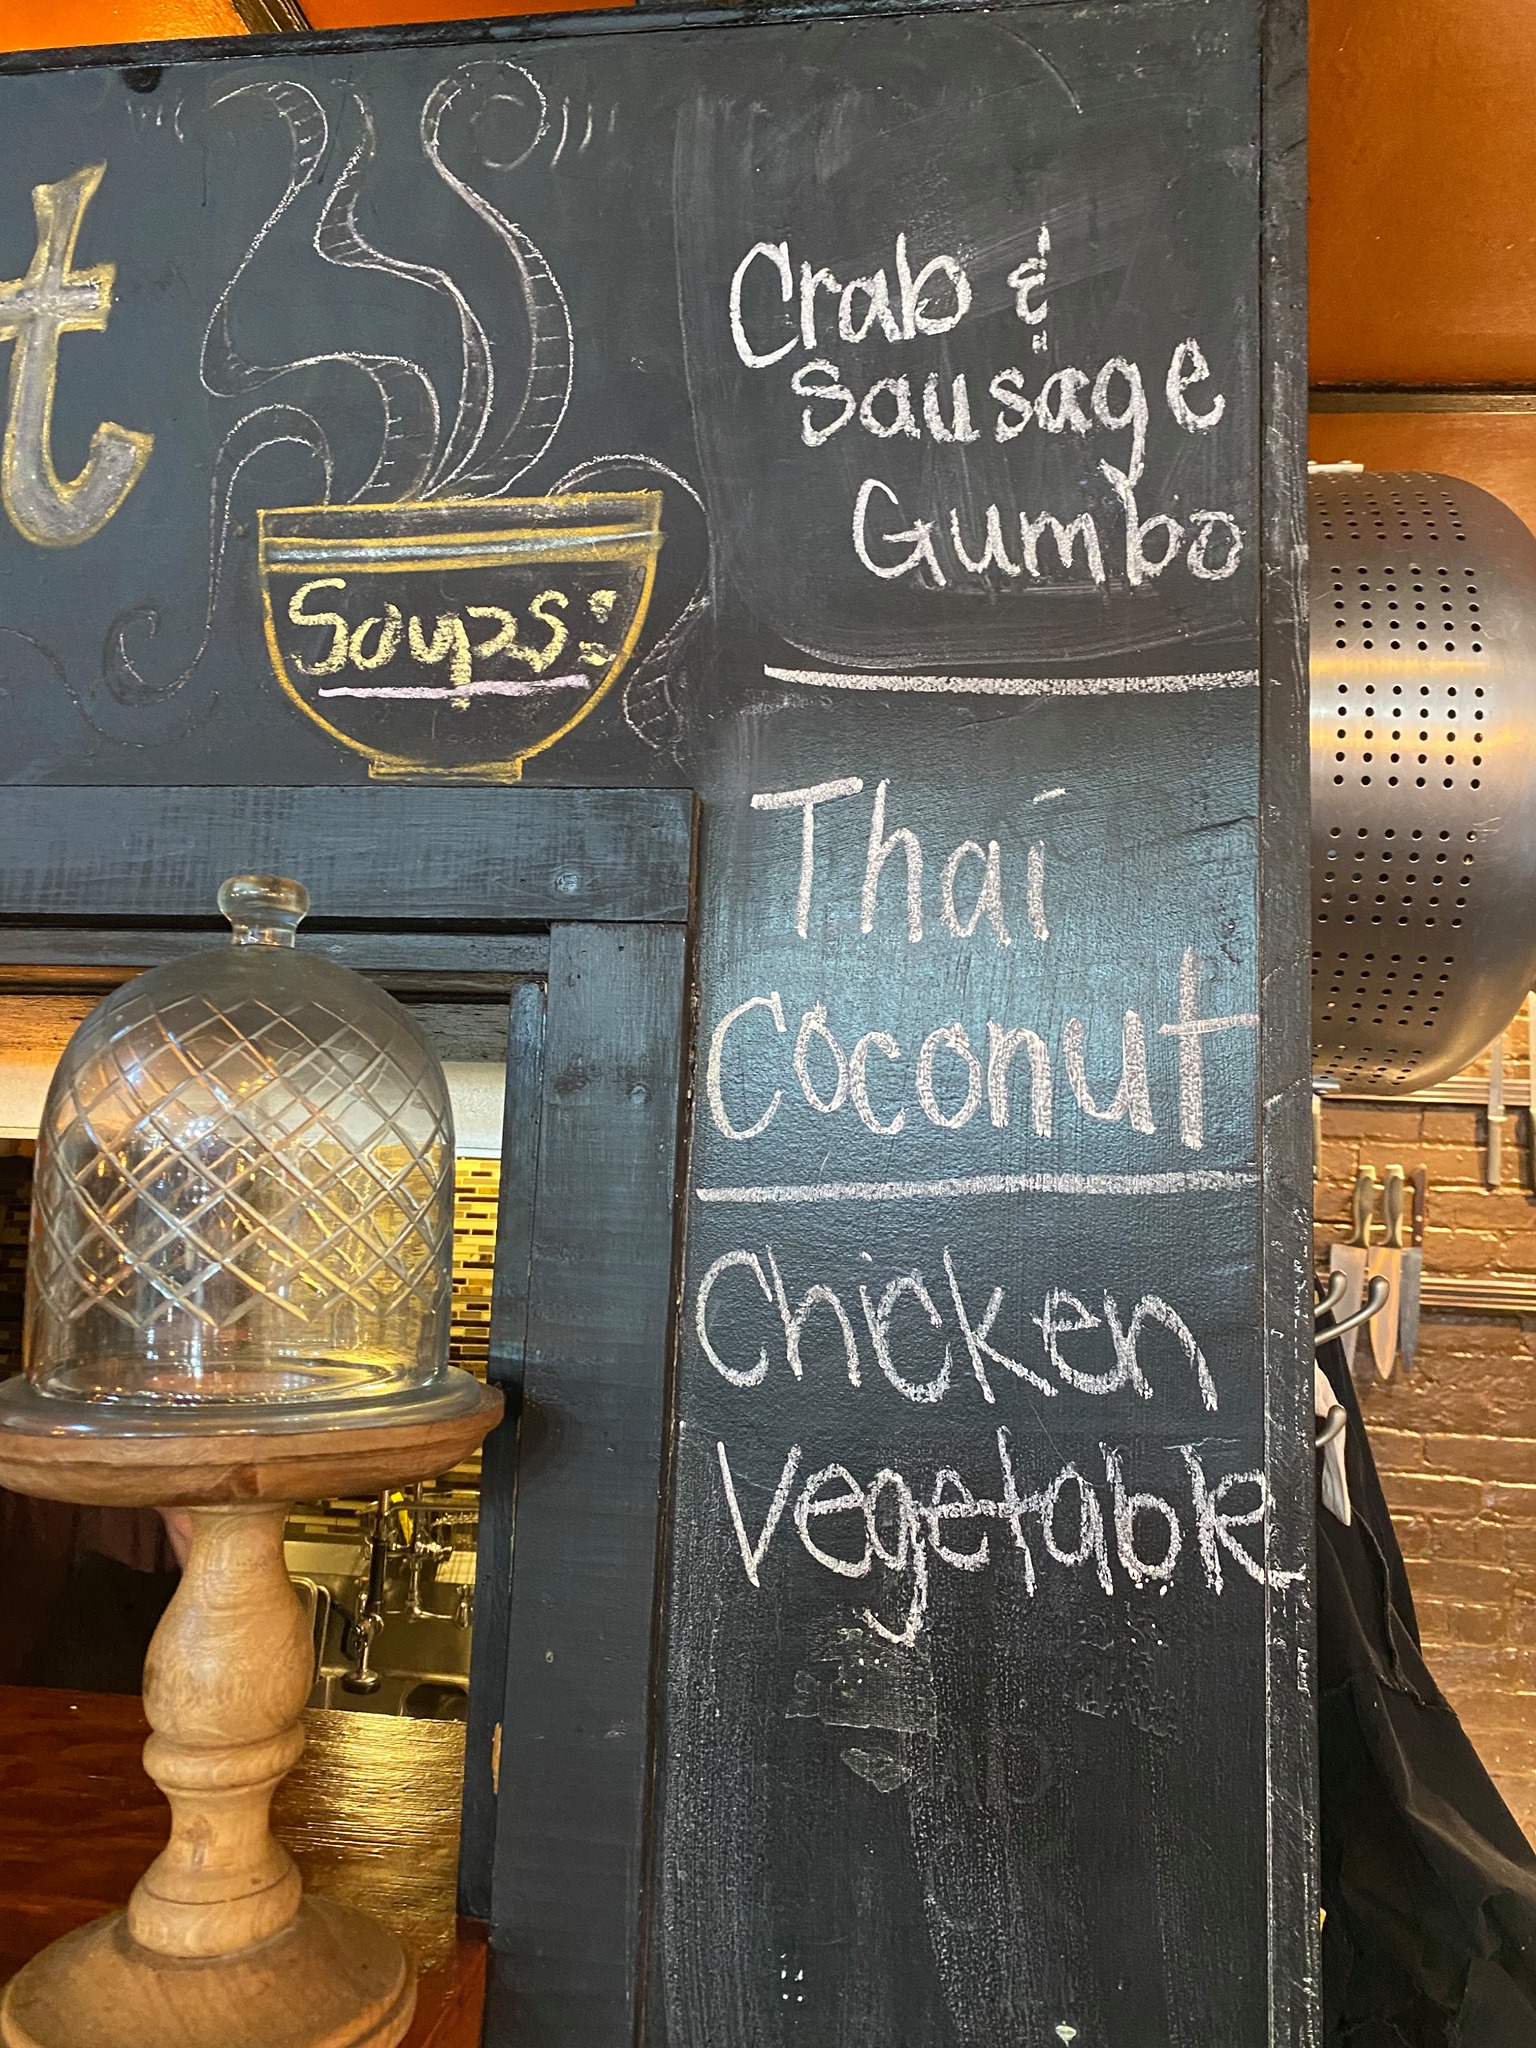 t
Soups:
Crab &
Sausage
Gumbo
Thai
Coconut
Chicken
Vegetable